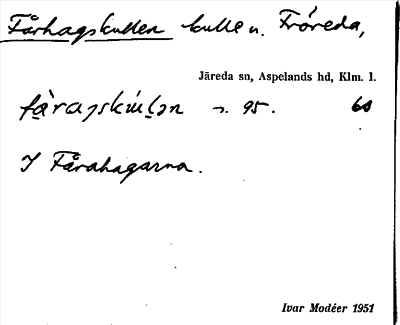 Fårhagskullen kulle n. Fröreda,
Järeda sn, Aspelands hd, Klm. l.
95.
I Fårahagarna.
Ivar Modéer 1951